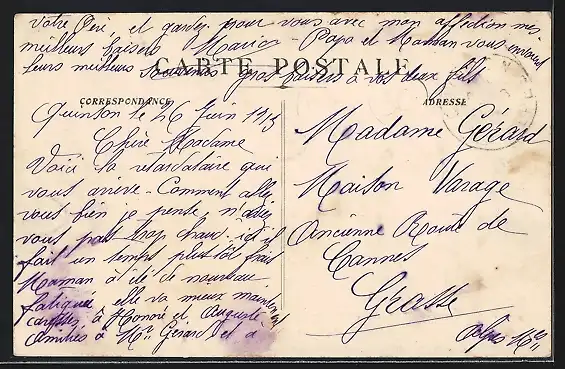 CARTE POSTALE
CORRESPONDANCE
ADRESSE
Quinson le 26 Juin 1915
Chère Madame
Voici la retardataire qui
vous arrive - Comment allez
vous bien je pense, n'avez
vous pas trop chaud. ici il
fait un temps plus tôt frais
Maman à été de nouveau
fatiguée, elle va mieux maintenant
caresses à Honoré et Auguste
amitiés à Mr Gérard et à
votre Père, et gardez pour vous avec mon affection mes
meilleurs baisers Marie - Papa et Maman vous envoient
leurs meilleurs souvenirs gros baisers à vos deux fils
Madame Gérard
Maison Varage
Ancienne Route de
Cannes
Grasse
Alpes Mmes